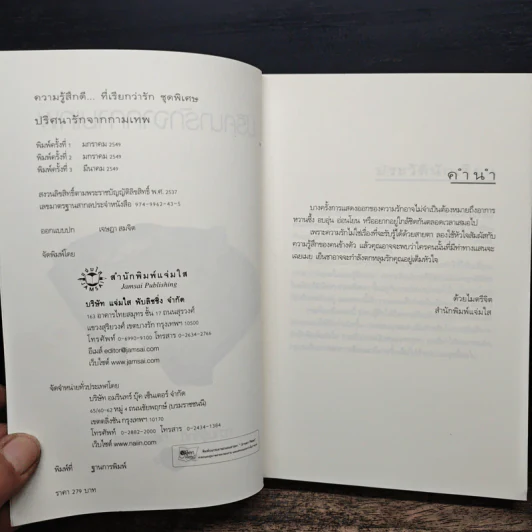 ความรู้สึกดี... ที่เรียกว่ารัก ชุดพิเศษ
ปริศนารักจากกามเทพ
พิมพ์ครั้งที่ 1 มกราคม 2549
พิมพ์ครั้งที่ 2 มกราคม 2549
พิมพ์ครั้งที่ 3 มีนาคม 2549
สงวนลิขสิทธิ์ตามพระราชบัญญัติลิขสิทธิ์ พ.ศ. 2537
เลขมาตรฐานสากลประจำหนังสือ 974-9962-43-5
ออกแบบปก เจษฎา สมจิต
จัดพิมพ์โดย
สำนักพิมพ์แจ่มใส
Jamsai Publishing
บริษัท แจ่มใส พับลิชชิ่ง จำกัด
163 อาคารไทยสมุทร ชั้น 17 ถนนสุรวงศ์
แขวงสุริยวงศ์ เขตบางรัก กรุงเทพฯ 10500
โทรศัพท์ 0-6990-9100 โทรสาร 0-2634-2766
อีเมล์ editor@jamsai.com
เว็บไซต์ www.jamsai.com
จัดจำหน่ายทั่วประเทศโดย
บริษัท อมรินทร์ บุ๊ค เซ็นเตอร์ จำกัด
65/60-62 หมู่ 4 ถนนชัยพฤกษ์ (บรมราชชนนี)
เขตตลิ่งชัน กรุงเทพฯ 10170
โทรศัพท์ 0-2882-2000 โทรสาร 0-2434-1384
เว็บไซต์ www.naiin.com
พิมพ์ที่ ฐานการพิมพ์
ราคา 279 บาท
คำนำ
บางครั้งการแสดงออกของความรักอาจไม่จำเป็นต้องหมายถึงอาการ
หวานซึ้ง อบอุ่น อ่อนโยน หรืออยากอยู่ใกล้ชิดกันตลอดเวลาเสมอไป
เพราะความรักไม่ใช่เรื่องที่จะรับรู้ได้ด้วยสายตา ลองใช้หัวใจสัมผัสกับ
ความรู้สึกของคนข้างตัว แล้วคุณอาจจะพบว่าใครคนนั้นที่มีท่าทางแสนจะ
เฉยเมย เย็นชาอาจจะกำลังตกหลุมรักคุณอยู่เต็มหัวใจ
ด้วยไมตรีจิต
สำนักพิมพ์แจ่มใส